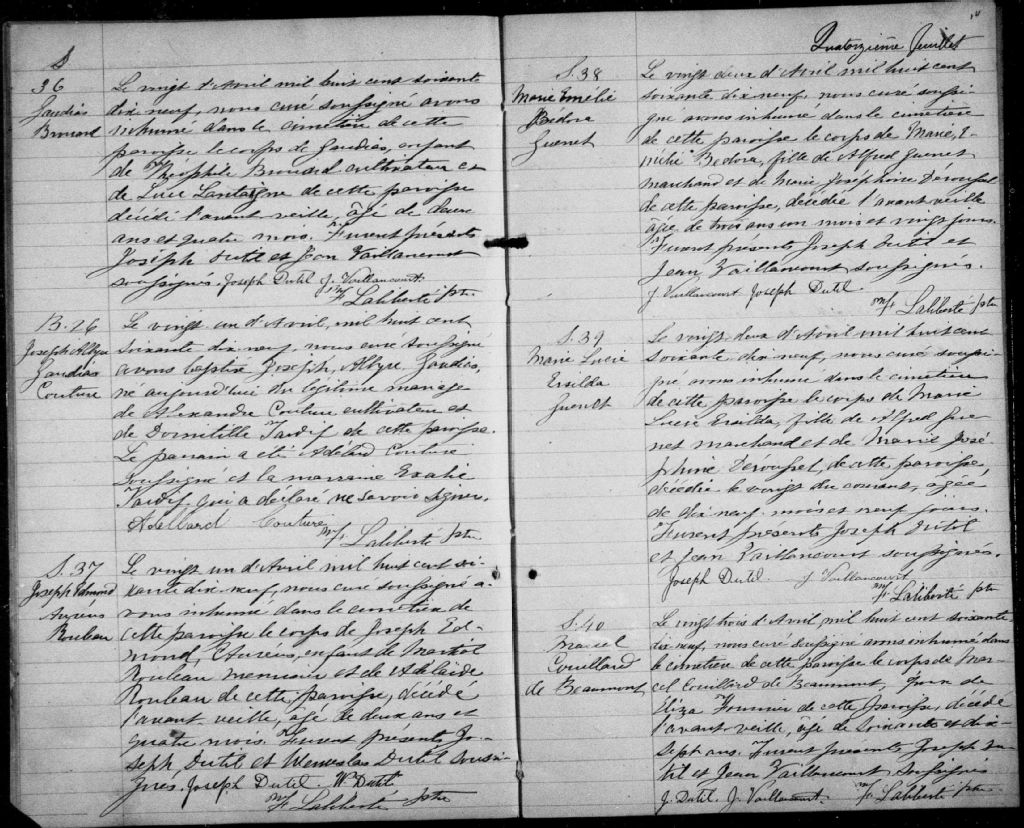 S
36
Gaudias
Brouard
Le vingt d'Avril mil huit cent soixante
dix neuf, nous curé soussigné avons
inhumé dans le cimetière de cette
paroisse le corps de Gaudias, enfant
de Théophile Brouard cultivateur et
de Luce Lantaigne de cette paroisse
décédé l'avant veille, âgé de deux
ans et quatre mois. Furent présents
Joseph Dutil et Jean Vaillancourt
soussignés. Joseph Dutil J. Vaillancourt.
F. Laliberté ptre
B. 26
Joseph Albyre
Gaudias
Couture
Le vingt un d'Avril, mil huit cent
soixante dix neuf, nous curé soussigné
avons baptisé Joseph, Albyre Gaudias,
né aujourd'hui du légitime mariage
de Alexandre Couture cultivateur et
de Domitille Tardif de cette paroisse.
Le parrain a été Adelard Couture
soussigné et la marraine
Tardif qui a déclaré ne savoir signer.
Adellard Couture
F. Laliberté ptre
S. 37
Joseph Edmond
Auréus
Rouleau
Le vingt un d'Avril mil huit cent soi-
xante dix-neuf, nous curé soussigné a-
vons inhumé dans le cimetière de
cette paroisse le corps de Joseph Ed-
mond, Auréus, enfant de
Rouleau menuisier et de Adelaïde
Rouleau de cette paroisse, décédé
l'avant veille, âgé de deux ans et
quatre mois. Furent présents Jo-
seph Dutil et Wenceslas Dutil soussi-
gnés. Joseph Dutil. W Dutil
F. Laliberté ptre
Quatorzième feuillet
S. 38
Marie Emélie
Bédora
Guenet
Le vingt deux d'Avril mil huit cent
soixante dix neuf, nous curé soussi-
gné avons inhumé dans le cimetière
de cette paroisse le corps de Marie, E-
mélie Bedora, fille de Alfred Guenet
marchand et de Marie Joséphine Derousset
de cette paroisse, décédée l'avant veille
âgée de trois ans un mois et vingt jours.
Furent présents Joseph Dutil et
Jean Vaillancourt soussignés.
J Vaillancourt Joseph Dutil
F. Laliberté ptre
S. 39
Marie Lucie
Ersilda
Guenet
Le vingt deux d'Avril mil huit cent
soixante dix neuf, nous curé soussi-
gné avons inhumé dans le cimetière
de cette paroisse le corps de Marie
Lucie Ersilda, fille de Alfred Gue-
net marchand et de Marie José-
phine Derousset, de cette paroisse,
décédée le vingt du courant, âgée
de dix neuf mois et neuf jours.
Furent présents Joseph Dutil
et Jean Vaillancourt soussignés.
Joseph Dutil. J Vaillancourt
F. Laliberté ptre
S. 40
Marcel
Couillard
de Beaumont
Le vingt trois d'Avril mil huit cent soixante
dix neuf, nous curé soussigné avons inhumé dans
le cimetière de cette paroisse le corps de Mar-
cel Couillard de Beaumont, époux de
Eliza Fournier de cette paroisse, décédé
l'avant-veille, âgé de soixante et dix
sept ans. Furent présents Joseph Du-
til et Jean Vaillancourt soussignés
J. Dutil J. Vaillancourt. F. Laliberté ptre